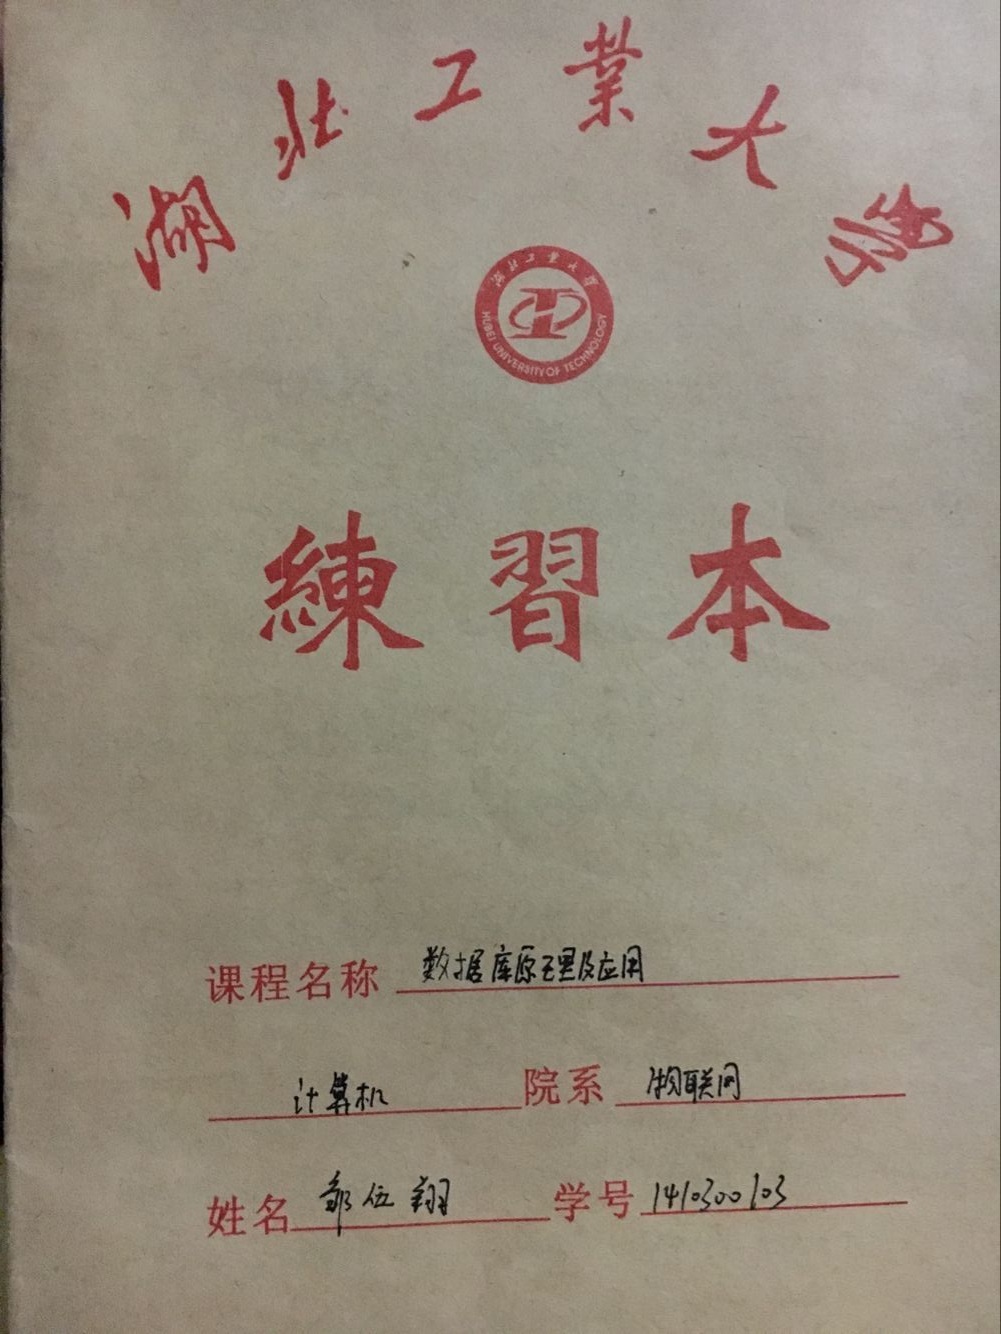 湖北工業大學
湖北工業大學
HUBEI UNIVERSITY OF TECHNOLOGY
練習本
课程名称 数据库原理及应用
计算机 院系 物联网
姓名 邹伍翔 学号 1410300103